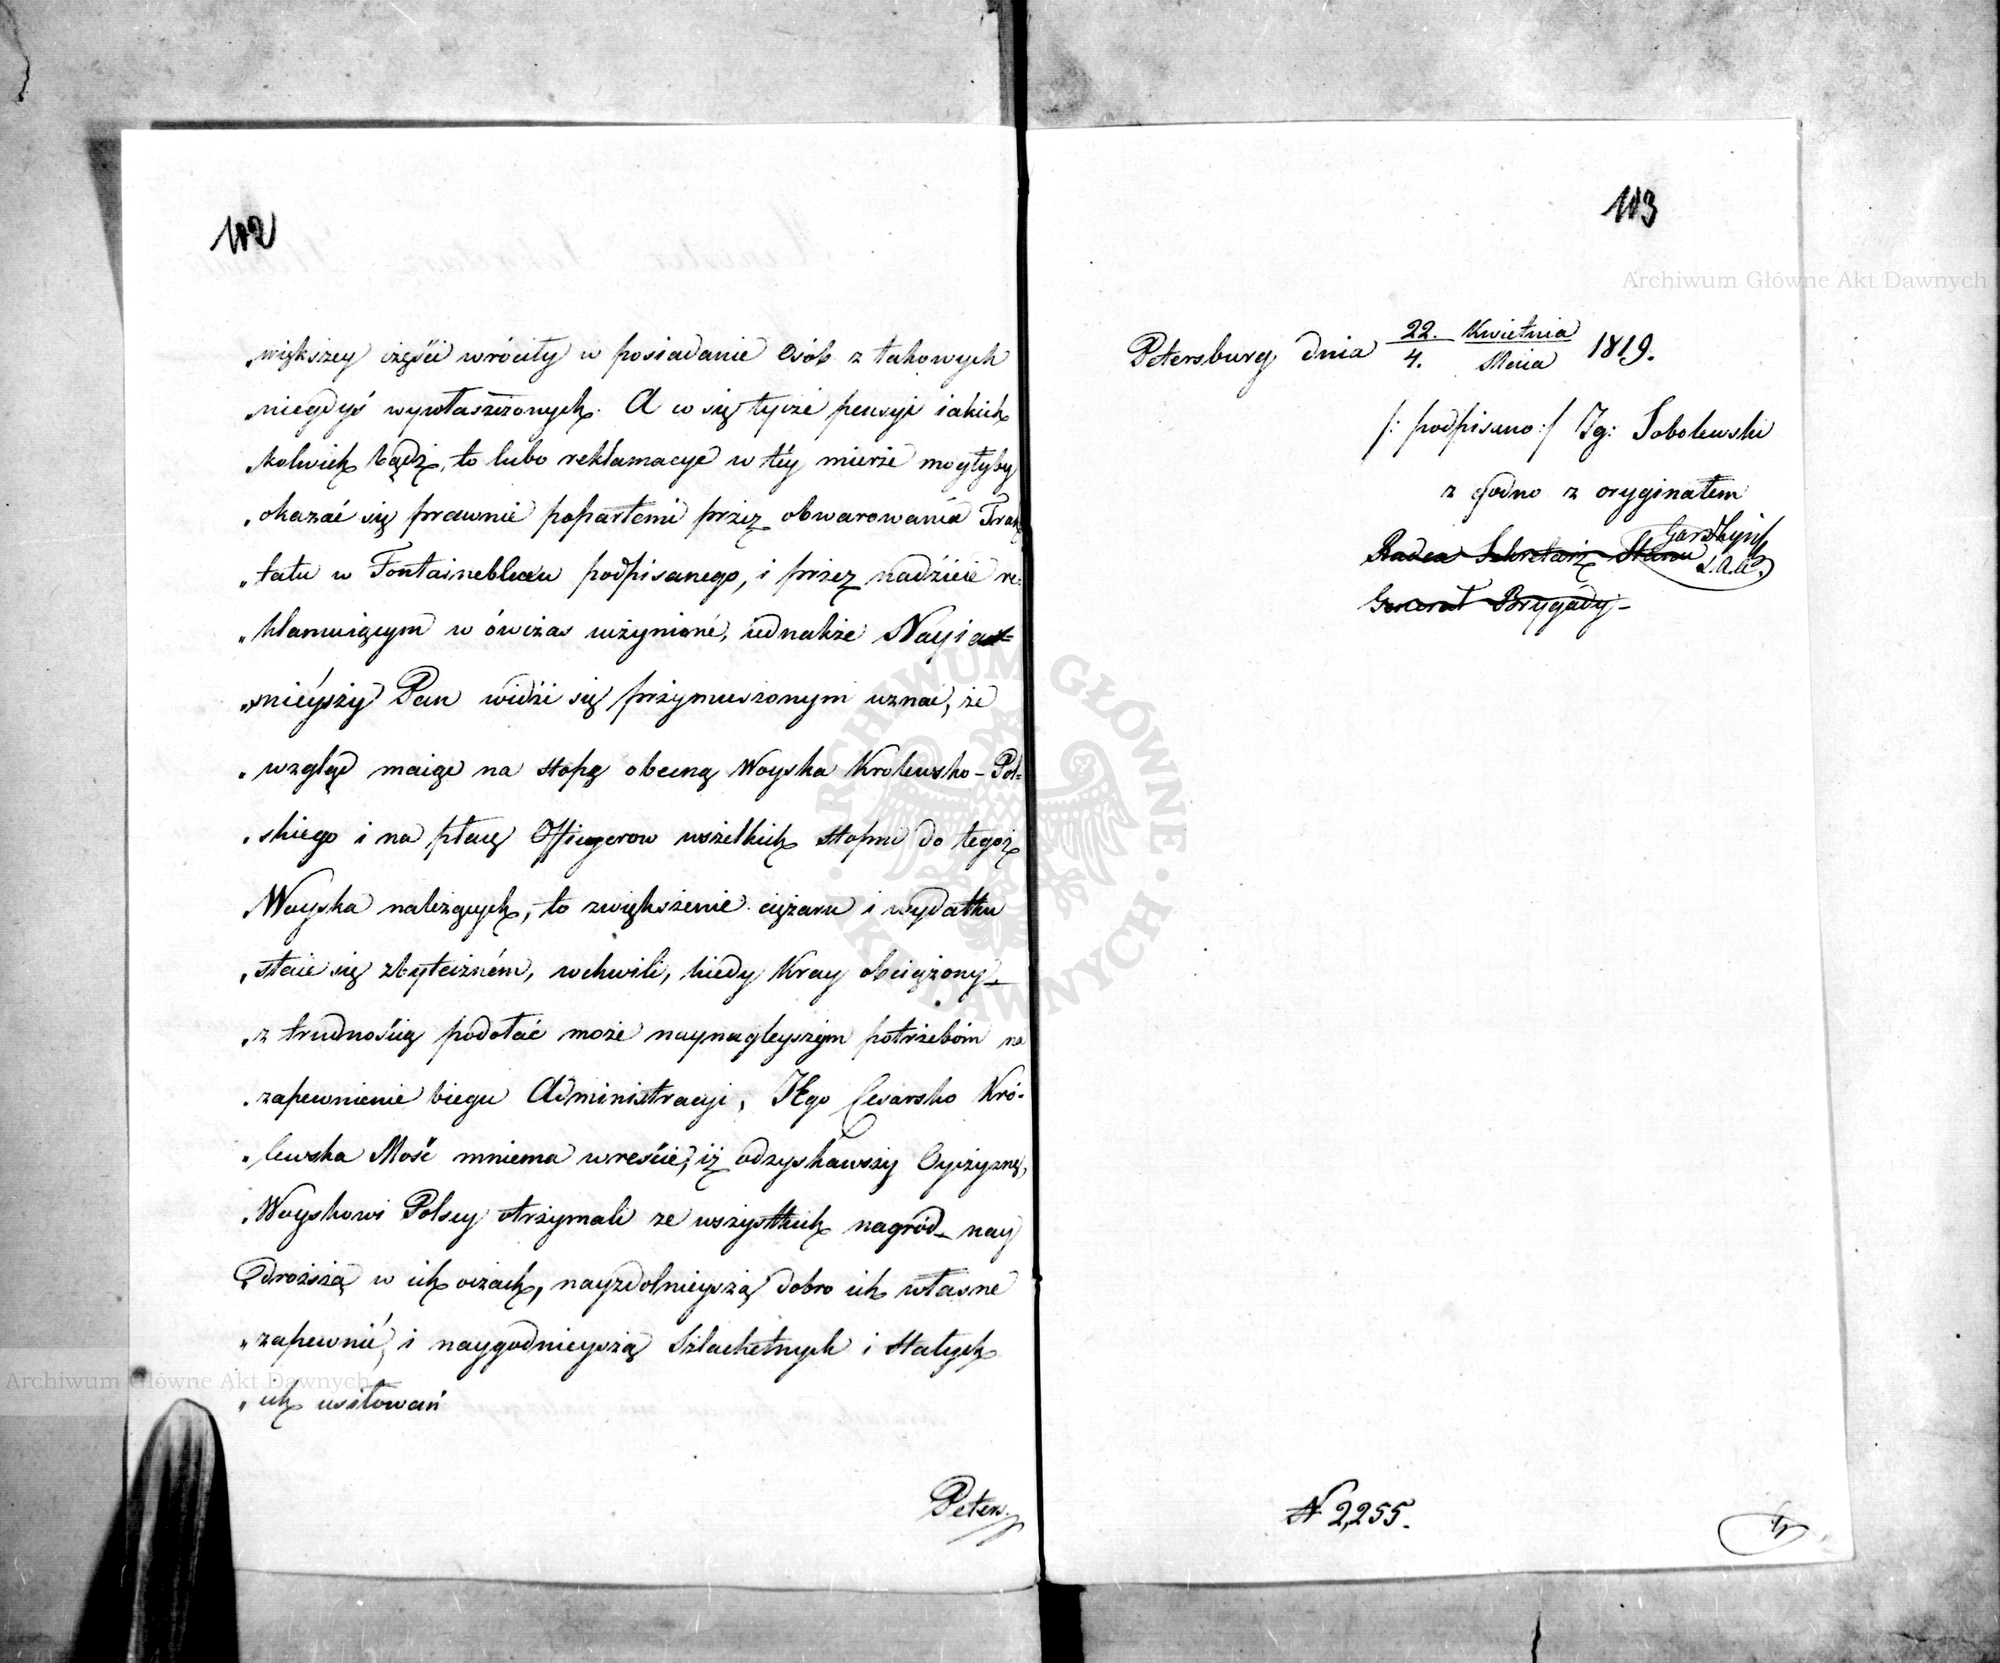 112
„większey części wróciły w posiadanie Osób z takowych
„niegdyś wywłaszczonych. A co się tycze pensyi iakich
„kolwiek bądź, to lubo reklamacye w téy mierze mogłyby
„okazać się prawnie popartemi przez obwarowania Trak
„tatu w Fontainebleau podpisanego, i przez nadzieie re-
„klamuiącym w ówczas uczynioné, iednakże Nayias-
„nieyszy Pan widzi się przymuszonym uznać, że
„wzgląd maiąc na stopę obecną Woyska Krolewsko-Pol-
„skiego i na płacę Officyerow wszelkich stopni do tegoż
„Woyska należących, to zwiększenie ciężaru i wydatku
„staie się zbyteczném, w chwili, kiedy Kray obciążony
„z trudnością podołać może naynagleyszym potrzebóm na
„zapewnienie biegu Administracyi, JEgo Cesarsko Kró-
„lewska Mość mniema wreście, iż odzyskawszy Oyczyznę,
„Woyskowi Polscy otrzymali ze wszystkich nagród nay
„droższą w ich oczach, nayzdolnieyszą dobro ich własne
„zapewnić, i naygodnieyszą szlachetnych i stałych
„ich usiłowań
Peters.
113
Petersburg dnia 22. Kwietnia / 4. Maia 1819.
/: podpisano :/ Ig: Sobolewski
zgodno z oryginałem
Radca Sekretarz Stanu
Generał Brygady
N 2,255.
Archiwum Główne Akt Dawnych
Archiwum Główne Akt Dawnych
ARCHIWUM GŁÓWNE · AKT DAWNYCH ·